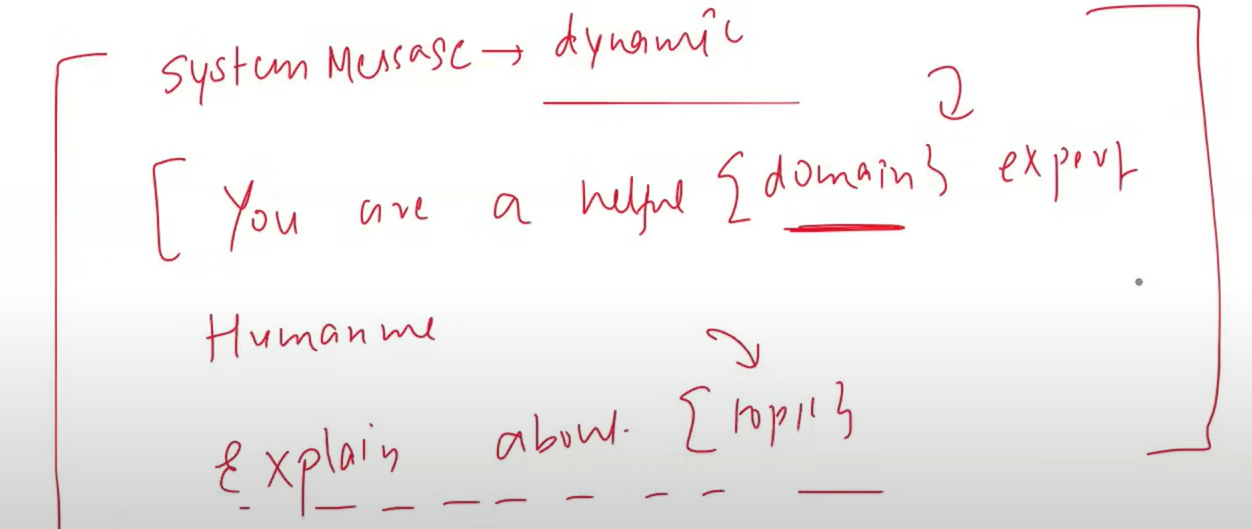 System Message → dynamic
You are a helpful {domain} expert
Humanme
Explain about {topic}